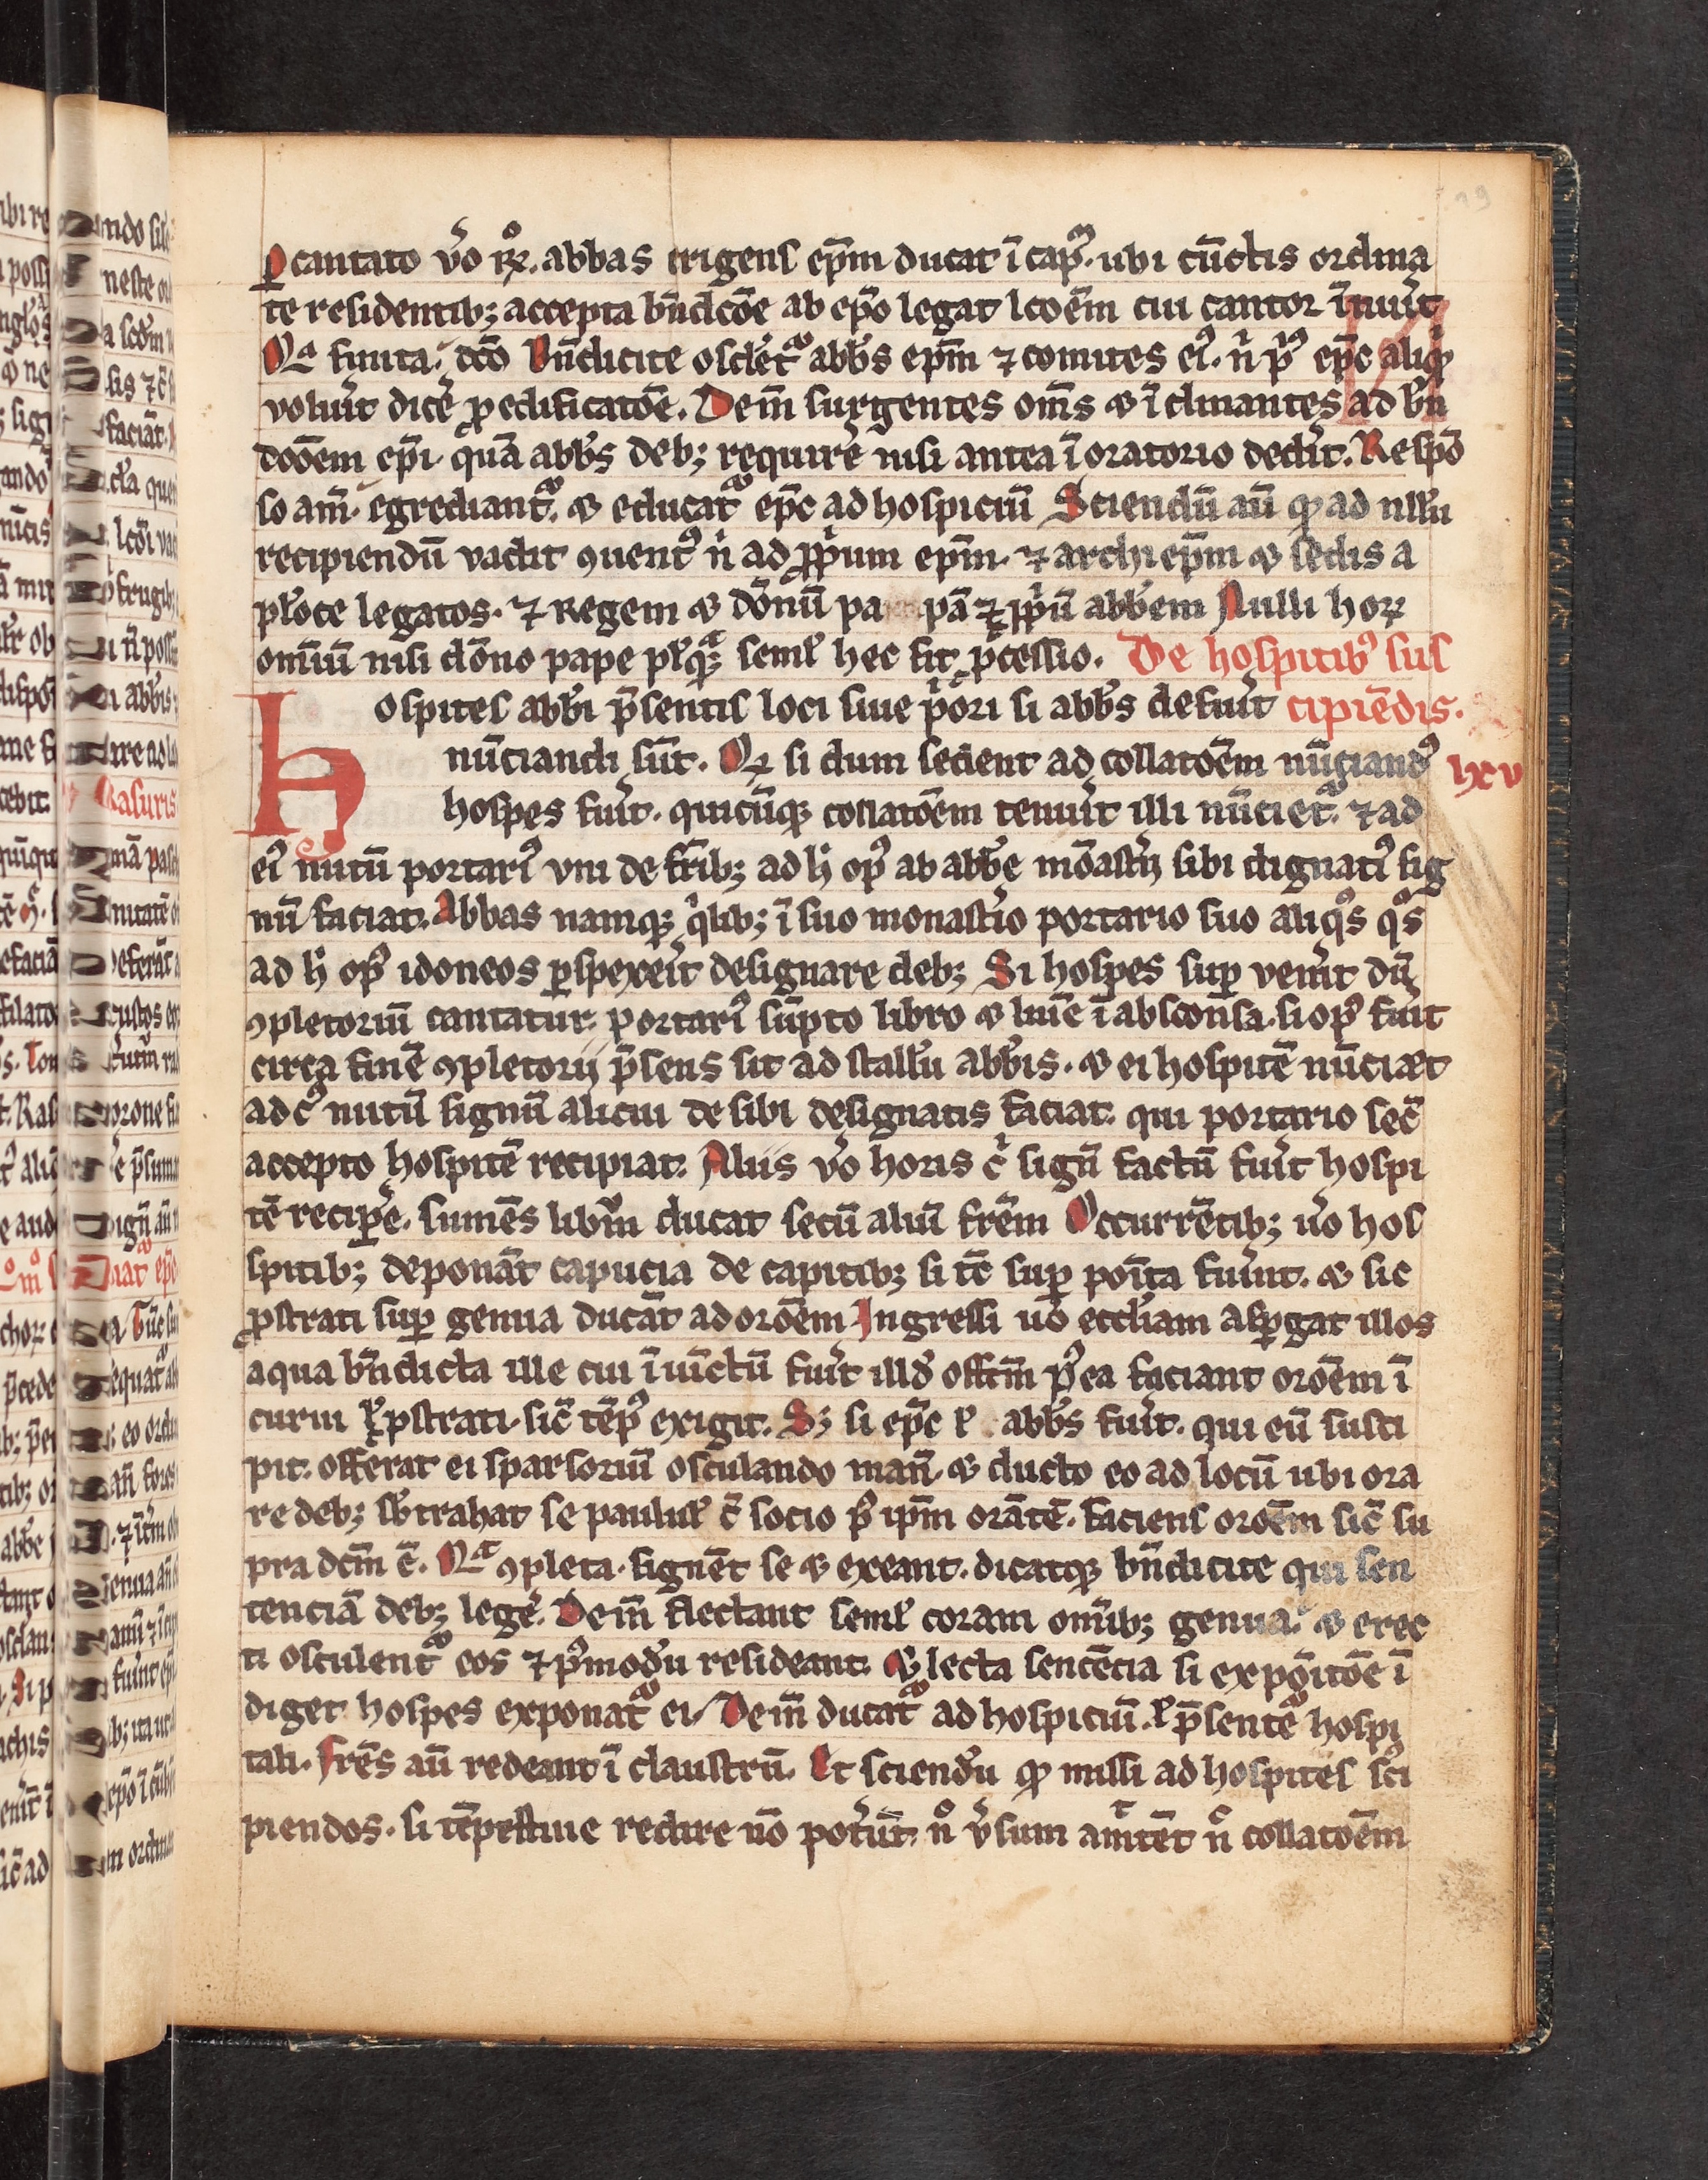 ꝑcantato v̄o ꝶ. abbas erigens ep̄m ducat ī cap̄. ubi cūctis ordina
te residentib; accepta bn̄dcōe ab ep̄o legat lcōem cui cantor īnuit
Q̄ finita. dc̄o Bn̄dicite osclēt᷑ abb̄s ep̄m ⁊ comites eiꝰ. n̄ pꝰ ep̄c aliqͥ
voluīt dicē ꝓ edificatōe. Dem̄ surgentes om̄s ⁊ īclinantes ad bn̄
dōōem ep̄i quā abb̄s deb; requirē nisi antea ī oratorio dedīt. Respō
so am̄. egrediant᷑. ⁊ educat᷑ ep̄c ad hospiciū Sciendū aū ꝙ ad nllū
recipiendū vadit ꝯuentꝰ n̄ ad ꝓpͥum ep̄m. ⁊ archiep̄m ⁊ sedis a
pl̄oce legatos. ⁊ Regem ⁊ dōnū pa pā ⁊ ꝓpͥū abb̄em Nulli hoꝝ
om̄iū nisi dōno pape pl̄qꝫ seml̄ hec fit ꝓcessio. De hospitibꝰ sus
Hospites abb̄i p̄sentis loci siue pͥori si abb̄s defuīt cipiēdis.
nūciandi sūt. Qꝫ si dum sedent ad collatōem nūciandꝰ lxv
hospes fuīt. quicūqꝫ collatōem tenuīt illi nūciet᷑. ⁊ ad
eiꝰ nutū portariꝰ vni de fr̄ib; ad h̄ opꝰ ab abb̄e mōastīj sibi dignatꝭ sig
nū faciat. Abbas namqꝫ qͥlib; ī suo monastīo portario suo aliqͦs qͦs
ad h̄ opꝰ idoneos ꝑspexerīt designare deb; Si hospes suꝑ venīt dū
ꝯpletoriū cantatur. portariꝰ sūpto libro ⁊ lumīe ī absconsa. si opꝰ fuīt
circa finē ꝯpletorij p̄sens sit ad stallū abb̄is. ⁊ ei hospitē nūciet
ad cꝰ nutū signū alicui de sibi designatis faciat. qui portario secū
accepto hospitē recipiat. Aliis v̄o horis cͥ signū factū fuīt hospi
tē reciꝑe. sumēs libm̄ ducat secū aliū fr̄em Occurrētib; ūo hos
spitib; deponāt capucia de capitib; si tc̄ suꝑ poīta fuīnt. ⁊ sic
ꝓstrati suꝑ genua ducāt ad orōem Ingressi ūo eccl̄iam asꝑgat illos
aqua bn̄dicta ille cui īiūctū fuīt illd̄ offm̄ pꝰea faciant orōem ī
curui ł ꝓstrati. sic̄ tēpꝰ exigit. S; si ep̄c ł abb̄s fuīt. qui eū susci
pit. offerat ei sparsoriū osculando manū. ⁊ ducto eo ad locū ubi ora
re deb; sb̄trahat se paulul̄ c̄ socio pꝰ ip̄m orātē. faciens orōem sic̄ su
pra dc̄m ē. Q̄ ꝯpleta. signēt se ⁊ exeant. dicatqꝫ bn̄dicite qui sen
tenciā deb; legē. Dem̄ flectant seml̄ coram om̄ib; genua. ⁊ erec
ti osculent᷑ eos ⁊ pꝰmodū resideant. ⁊ lecta sentēcia si expōitōe ī
diget hospes exponat᷑ ei. Dem̄ ducat᷑ ad hospiciū. ł p̄sentet᷑ hospi
tali. Fr̄es aū redeant ī claustrū. Et sciendū ꝙ missi ad hospites sci
piendos. si tēpestiue redire nō pot̄ūt. nͦ v̄sum amittēt nͨ collatōem